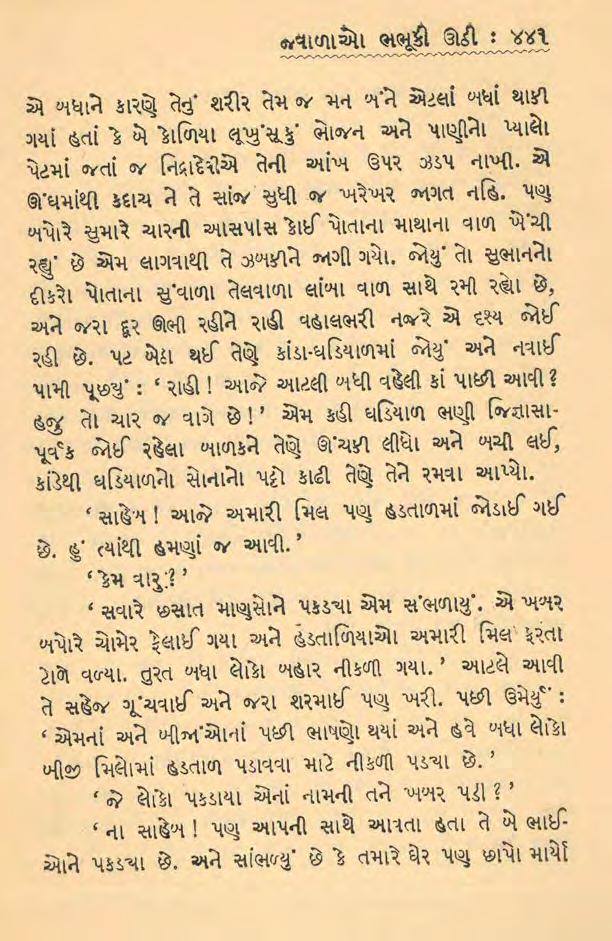 જ્વાળાઓ ભભૂકી ઊઠી : ૪૪૧
એ બધાને કારણે તેનું શરીર તેમ જ મન બંને એટલાં બધાં થાકી
ગયાં હતાં કે બે કોળિયા લૂખુંસૂકું ભોજન અને પાણીનો પ્યાલો
પેટમાં જતાં જ નિદ્રાદેવીએ તેની આંખ ઉપર ઝડપ નાખી. એ
ઊંઘમાંથી કદાચ ને તે સાંજ સુધી જ ખરેખર જાગત નહિ. પણ
બપોરે સુમારે ચારની આસપાસ કોઈ પોતાના માથાના વાળ ખેંચી
રહ્યું છે એમ લાગવાથી તે ઝબકીને જાગી ગયો. જોયું તો સુભાનનો
દીકરો પોતાના સુંવાળા તેલવાળા લાંબા વાળ સાથે રમી રહ્યો છે,
અને જરા દૂર ઊભી રહીને રાહી વહાલભરી નજરે એ દૃશ્ય જોઈ
રહી છે. પટ બેઠા થઈ તેણે કાંડા-ઘડિયાળમાં જોયું અને નવાઈ
પામી પૂછ્યું : ‘ રાહી ! આજે આટલી બધી વહેલી કાં પાછી આવી ?
હજુ તો ચાર જ વાગે છે ! ’ એમ કહી ઘડિયાળ ભણી જિજ્ઞાસા-
પૂર્વક જોઈ રહેલા બાળકને તેણે ઊંચકી લીધો અને બચી લઈ,
કાંડેથી ઘડિયાળનો સોનાનો પટ્ટો કાઢી તેણે તેને રમવા આપ્યો.
‘ સાહેબ ! આજે અમારી મિલ પણ હડતાળમાં જોડાઈ ગઈ
છે. હું ત્યાંથી હમણાં જ આવી. ’
‘ કેમ વારુ ? ’
‘ સવારે છસાત માણસોને પકડ્યા એમ સંભળાયું. એ ખબર
બપોરે ચોમેર ફેલાઈ ગયા અને હડતાળિયાઓ અમારી મિલ ફરતા
ટોળે વળ્યા. તુરત બધા લોકો બહાર નીકળી ગયા. ’ આટલે આવી
તે સહેજ ગૂંચવાઈ અને જરા શરમાઈ પણ ખરી. પછી ઉમેર્યું :
‘ એમનાં અને બીજાંઓનાં પછી ભાષણો થયાં અને હવે બધા લોકો
બીજી મિલોમાં હડતાળ પડાવવા માટે નીકળી પડ્યા છે. ’
‘ જે લોકો પકડાયા એનાં નામની તને ખબર પડી ? ’
‘ ના સાહેબ ! પણ આપની સાથે આવતા હતા તે બે ભાઈ-
ઓને પકડ્યા છે. અને સાંભળ્યું છે કે તમારે ઘેર પણ છાપો માર્યો